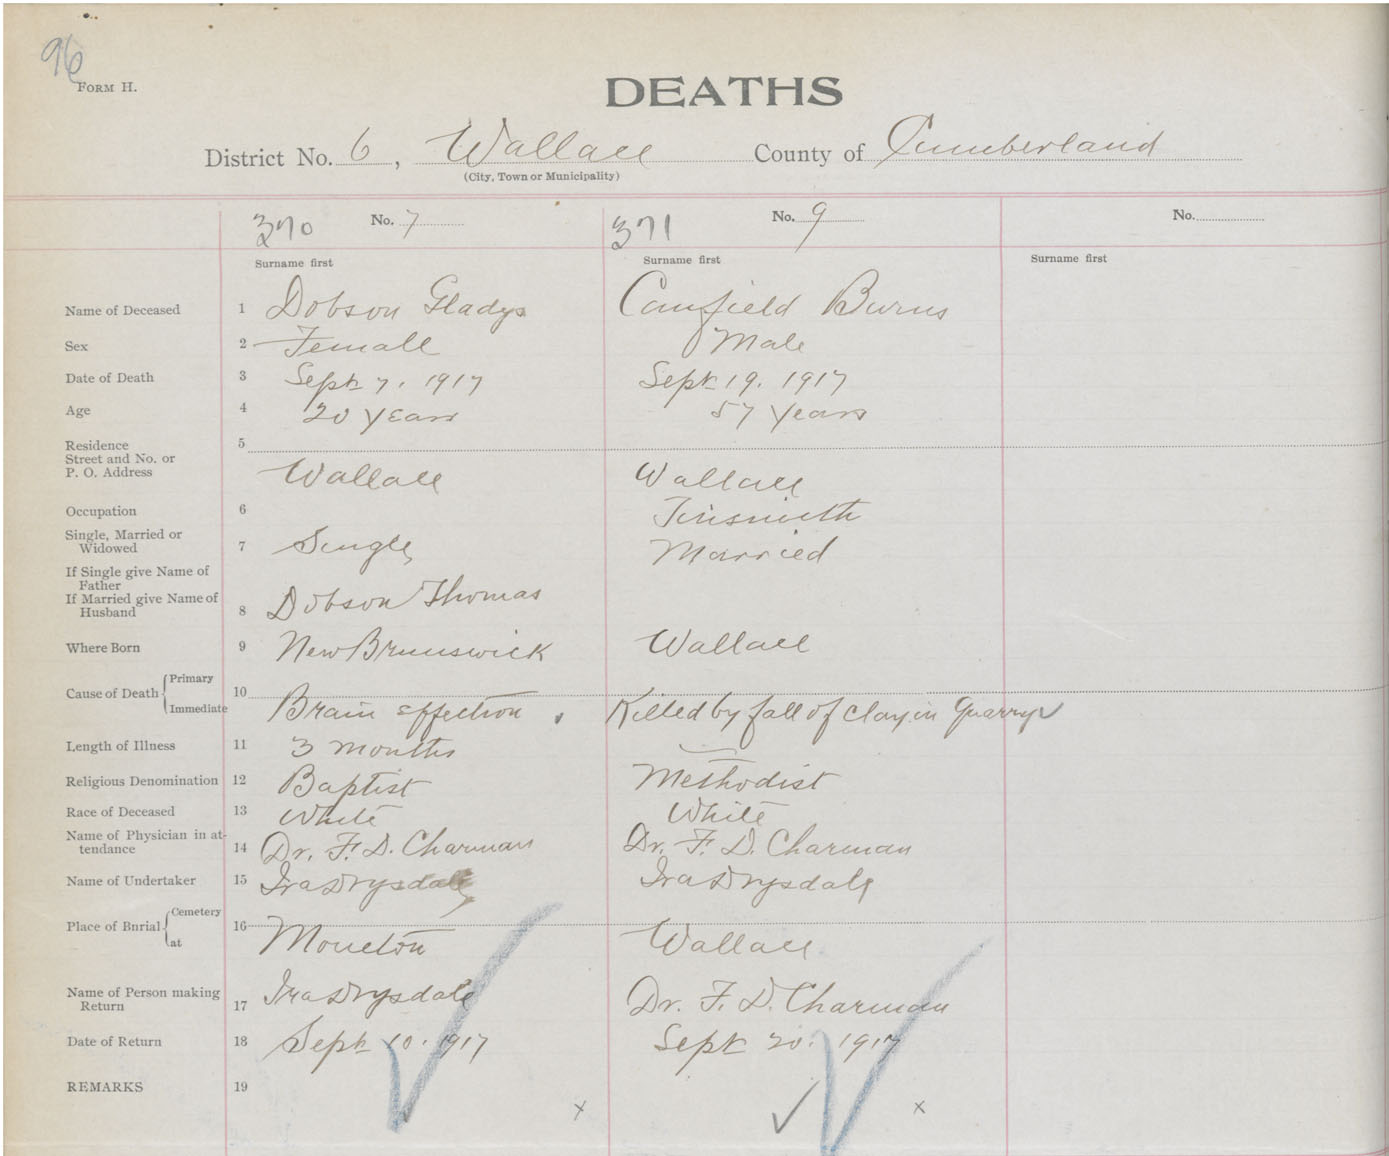 96
FORM H.
DEATHS
District No. 6, Wallace County of Cumberland
(City, Town or Municipality)
370 No. 7 371 No. 9 No.
Surname first Surname first Surname first
Name of Deceased 1 Dobson Gladys Canfield Burns
Sex 2 Female Male
Date of Death 3 Sept 7, 1917 Sept 19. 1917
Age 4 20 years 57 years
Residence 5
Street and No. or
P. O. Address Wallace Wallace
Occupation 6 Tinsmith
Single, Married or
Widowed 7 Single Married
If Single give Name of
Father
If Married give Name of
Husband 8 Dobson Thomas
Where Born 9 New Brunswick Wallace
Cause of Death Primary 10
Immediate Brain effection. Killed by fall of clay in Quarry
Length of Illness 11 3 months —
Religious Denomination 12 Baptist Methodist
Race of Deceased 13 White White
Name of Physician in at-
tendance 14 Dr. F. D. Charman Dr. F. D. Charman
Name of Undertaker 15 Ira Drysdale Ira Drysdale
Place of Burial Cemetery 16
at Moncton Wallace
Name of Person making
Return 17 Ira Drysdale Dr. F. D. Charman
Date of Return 18 Sept 10. 1917 Sept 20. 1917
REMARKS 19
x ✓ x